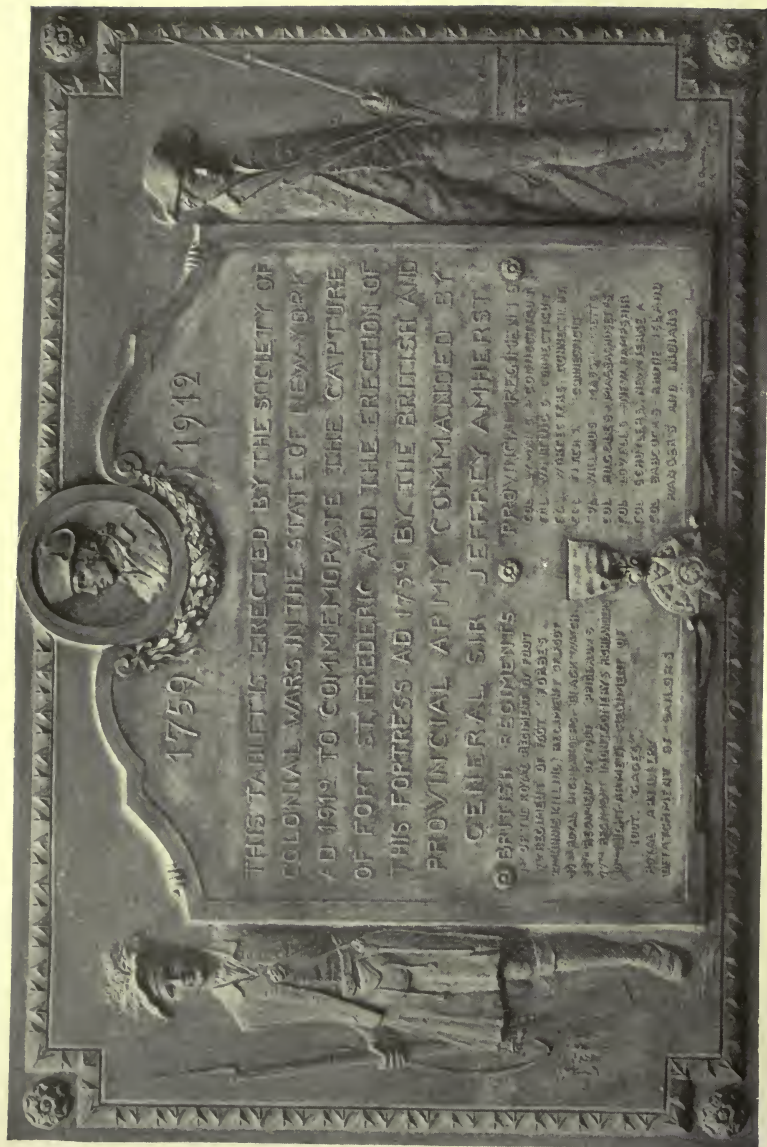 1759 1912
THIS TABLET IS ERECTED BY THE SOCIETY OF
COLONIAL WARS IN THE STATE OF NEW-YORK
AD 1912 TO COMMEMORATE THE CAPTURE
OF FORT ST. FREDERIC AND THE ERECTION OF
THIS FORTRESS AD 1759 BY THE BRITISH AND
PROVINCIAL ARMY COMMANDED BY
GENERAL SIR JEFFREY AMHERST
BRITISH REGIMENTS
1ST OR THE ROYAL REGIMENT OF FOOT
REGIMENT OF FOOT FORBES
(INNISKILLING) REGIMENT OF FOOT
ROYAL HIGHLANDERS BLACK WATCH
REGIMENT OF FOOT PRIDEAUX'S
77TH REGIMENT MONTGOMERY'S HIGHLANDERS
LIGHT ARMED REGIMENT OF
FOOT. GAGES
ROYAL ARTILLERY
DETACHMENT OF SAILORS
PROVINCIAL REGIMENTS
COL CONNECTICUT
COL CONNECTICUT
COL WORCESTERS CONNECTICUT
COL FITCH'S CONNECTICUT
COL WILLARDS MASSACHUSETTS
COL RUGGLES MASSACHUSETTS
COL LOVELLS NEW HAMPSHIRE
COL SCHUYLERS NEW JERSEY
COL BABCOCKS RHODE ISLAND
RANGERS AND INDIANS